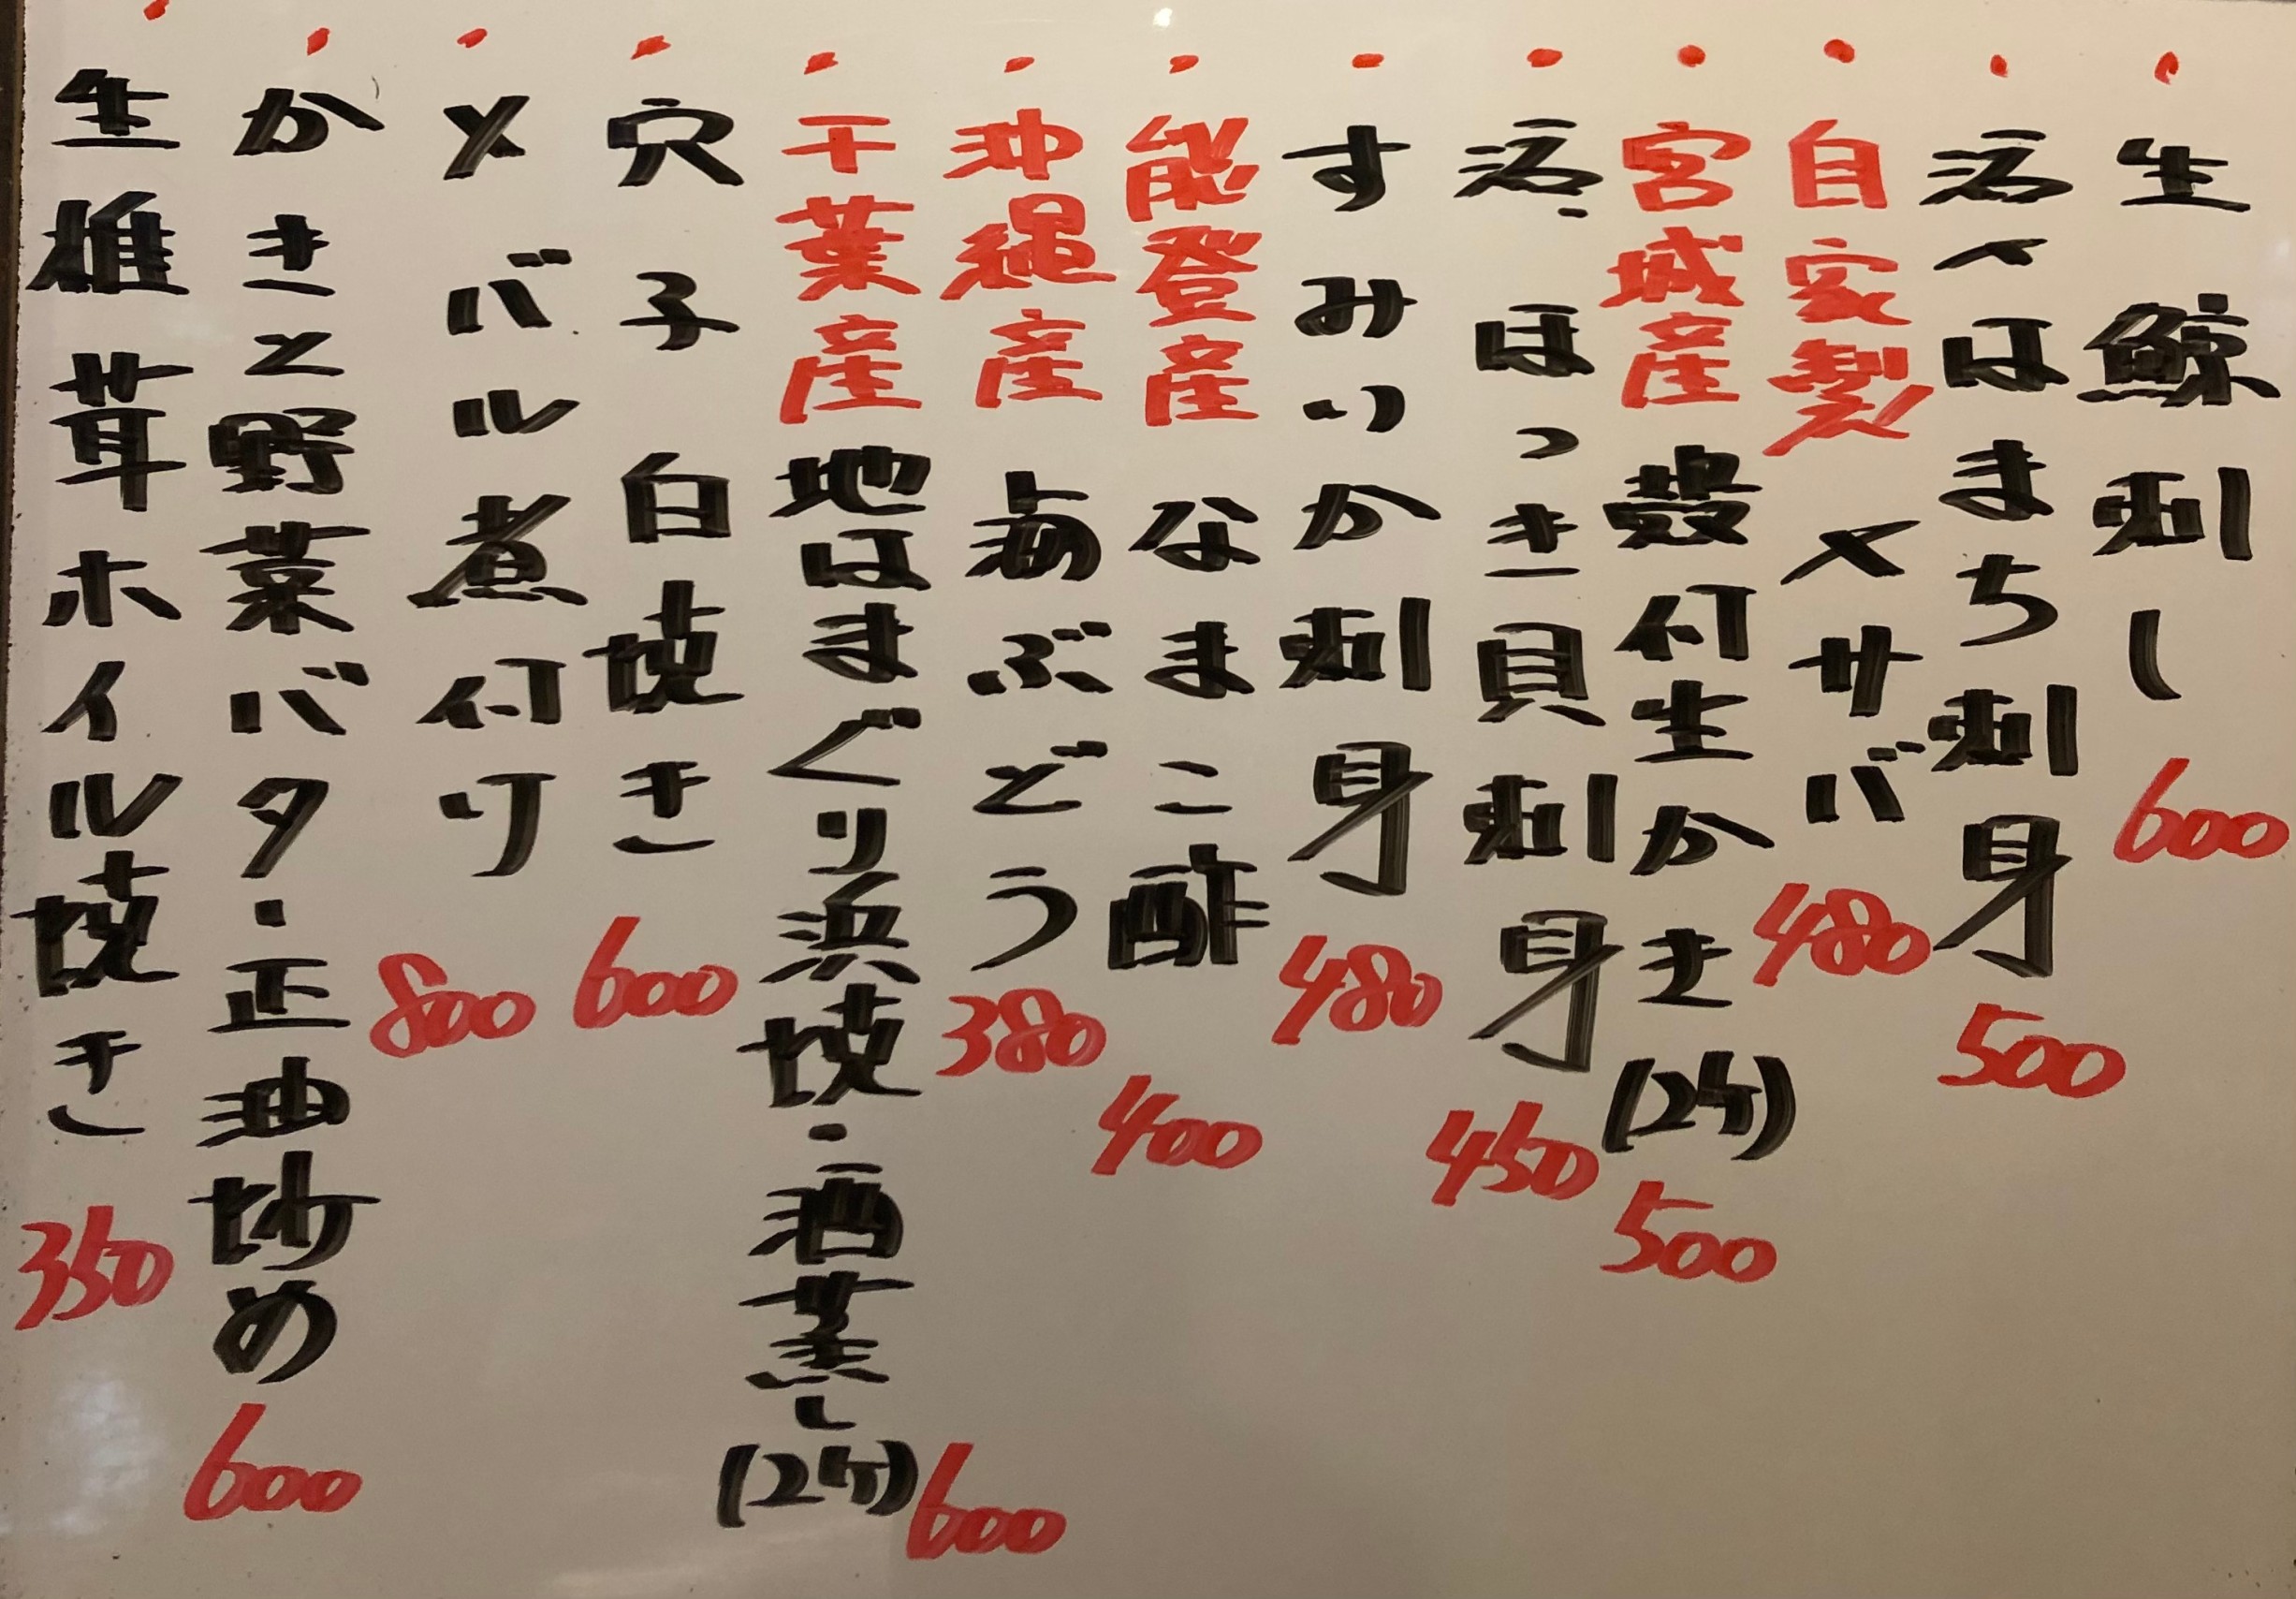 ・生鯨刺し 600
・活〆はまち刺身 500
・自家製〆サバ 480
・宮城産殻付生かき(2ケ) 500
・活ほっき貝刺身 450
・すみいか刺身 480
・能登産なまこ酢 400
・沖縄産海ぶどう 380
・千葉産地はまぐり浜焼・酒蒸し(2ケ) 600
・穴子白焼き 600
・メバル煮付け 800
・かきと野菜バタ・正油炒め 600
・生椎茸ホイル焼き 350